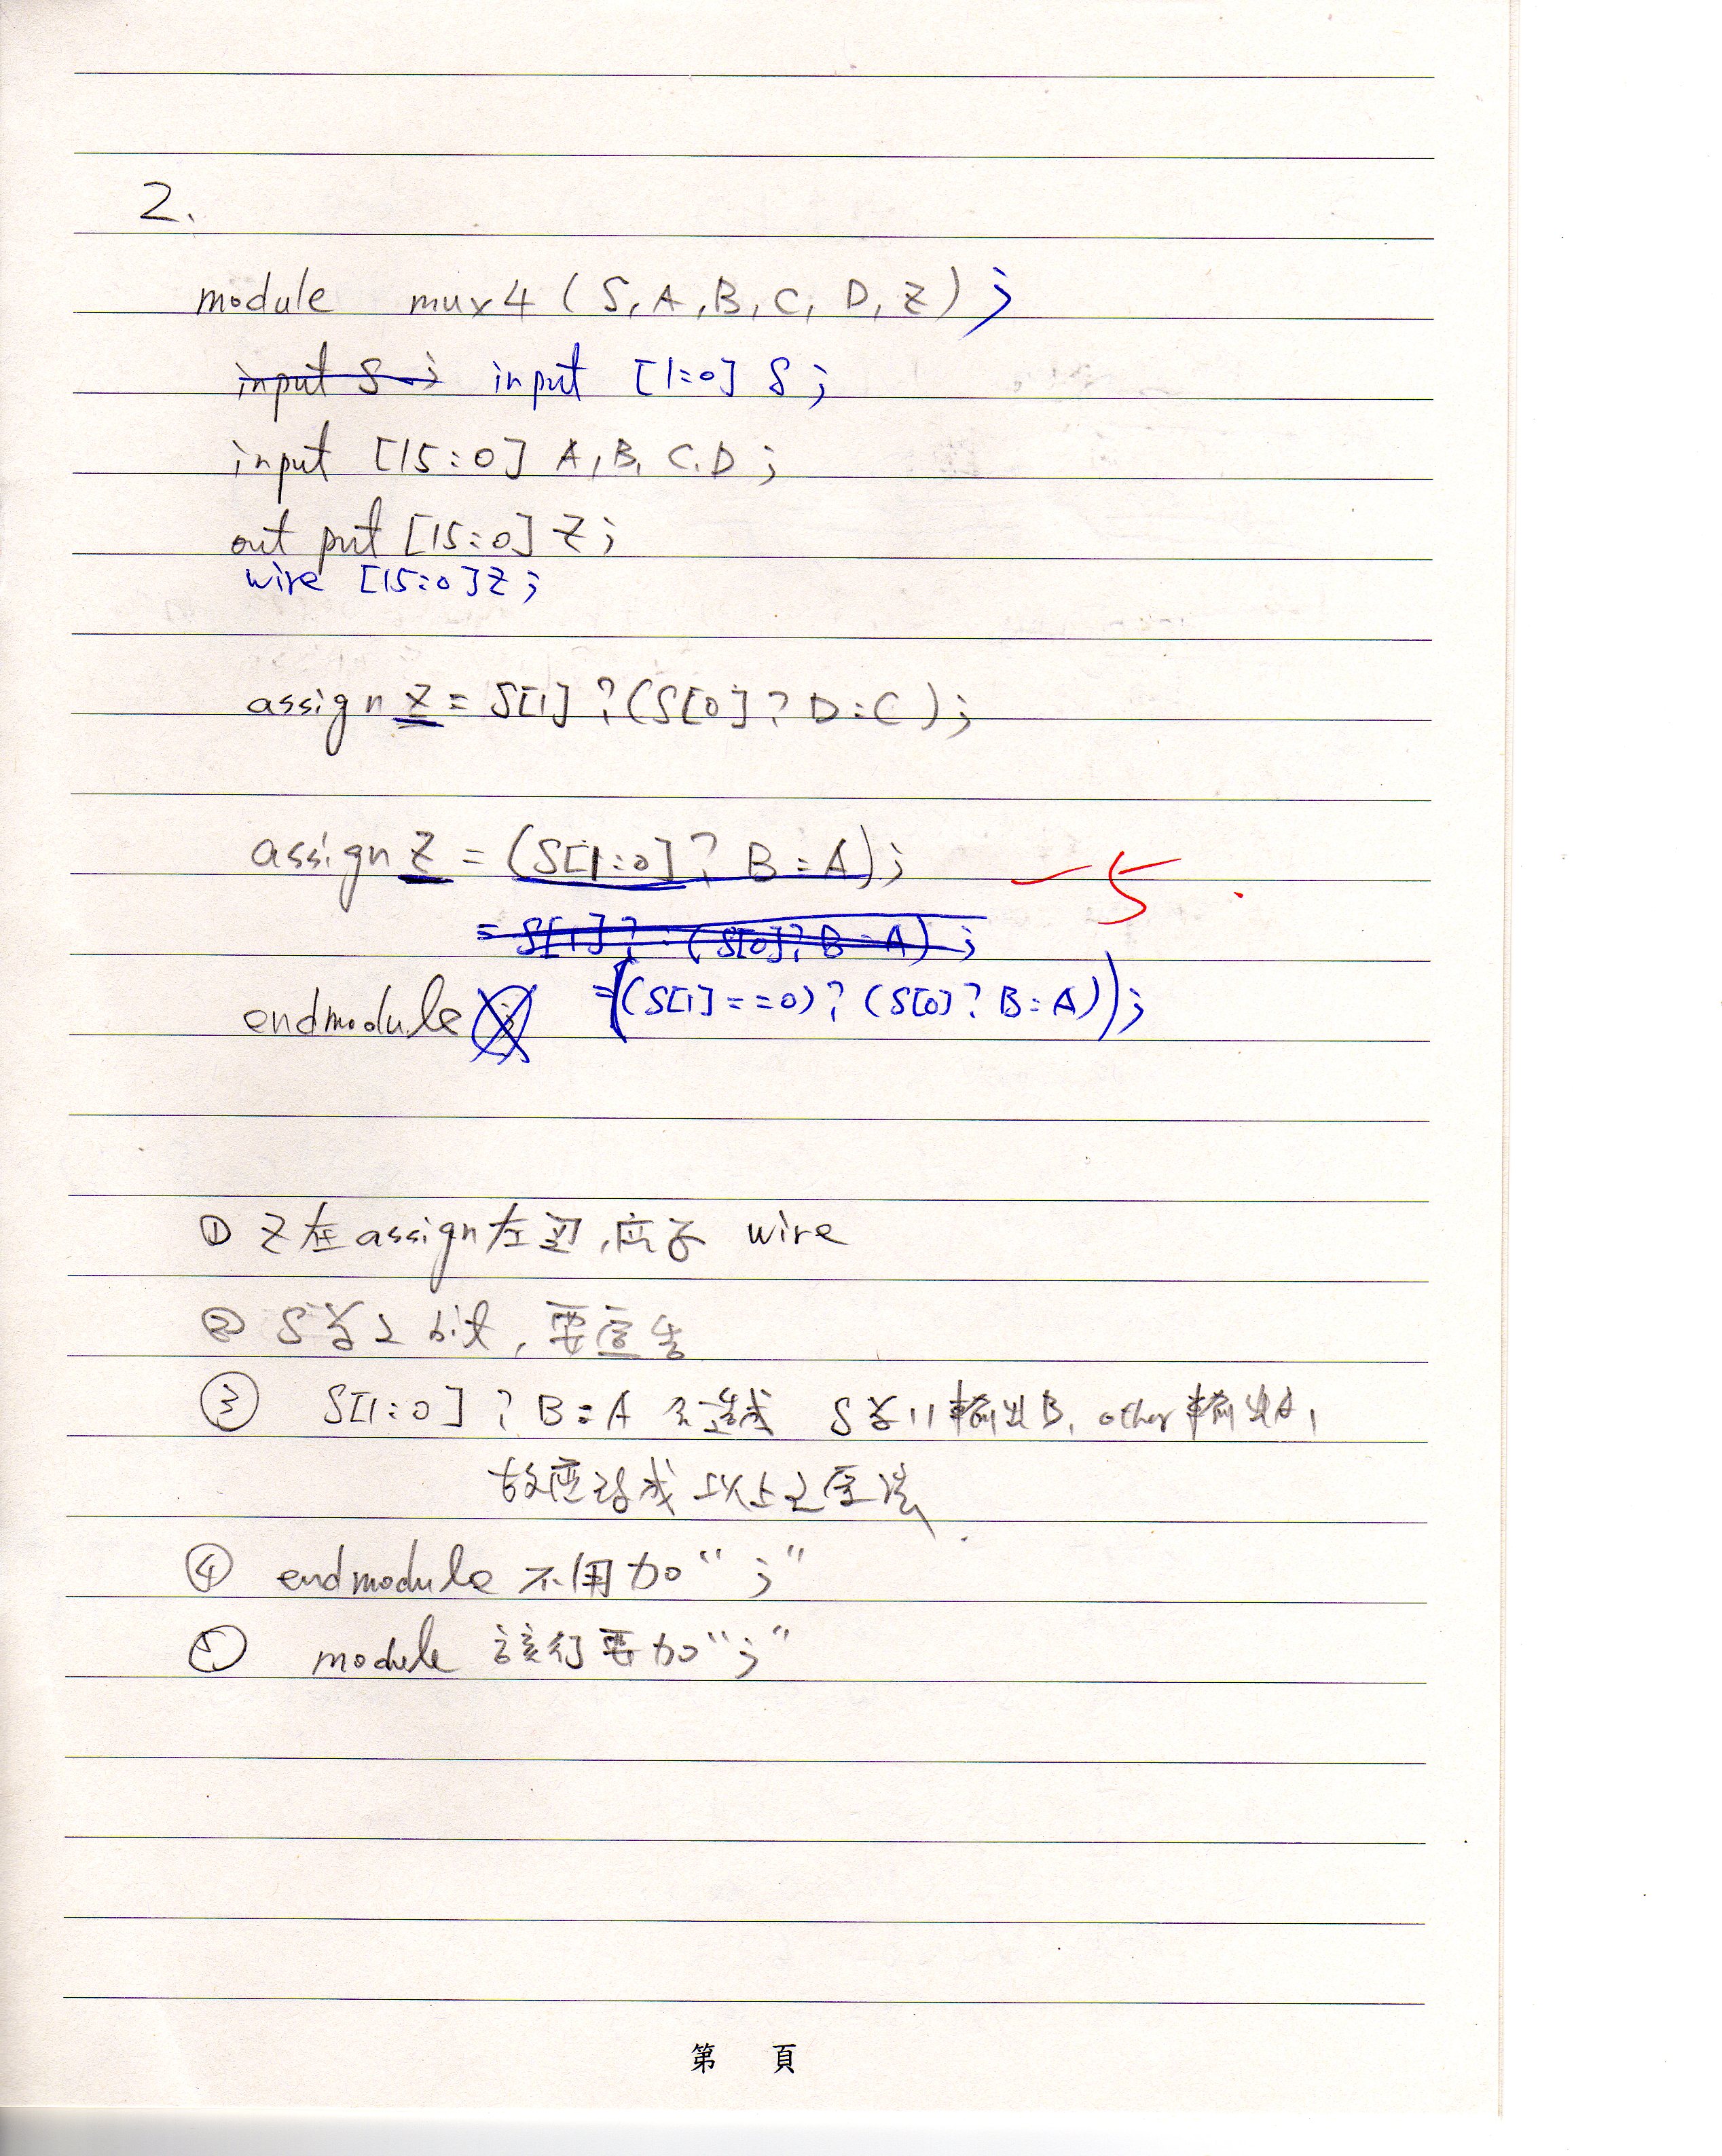 2.
module mux4 (S, A, B, C, D, Z) ;
input S ; input [1:0] S ;
input [15:0] A, B, C, D ;
out put [15:0] Z ;
wire [15:0] Z ;
assign Z = S[1] ? (S[0] ? D : C ) ;
assign Z = (S[1:0] ? B : A) ;
-5 .
= S[1] ? : (S[0] ? B : A) ;
endmodule ;
=((S[1] == 0) ? (S[0] ? B : A)) ;
① Z在assign左边,应为 wire
② S為2 bit, 要宣告
③ S[1:0] ? B : A 會造成 S為11輸出B, other輸出A,
故應改成 以上之寫法.
④ endmodule 不用加 " ; "
⑤ module 該行要加 " ; "
第 頁